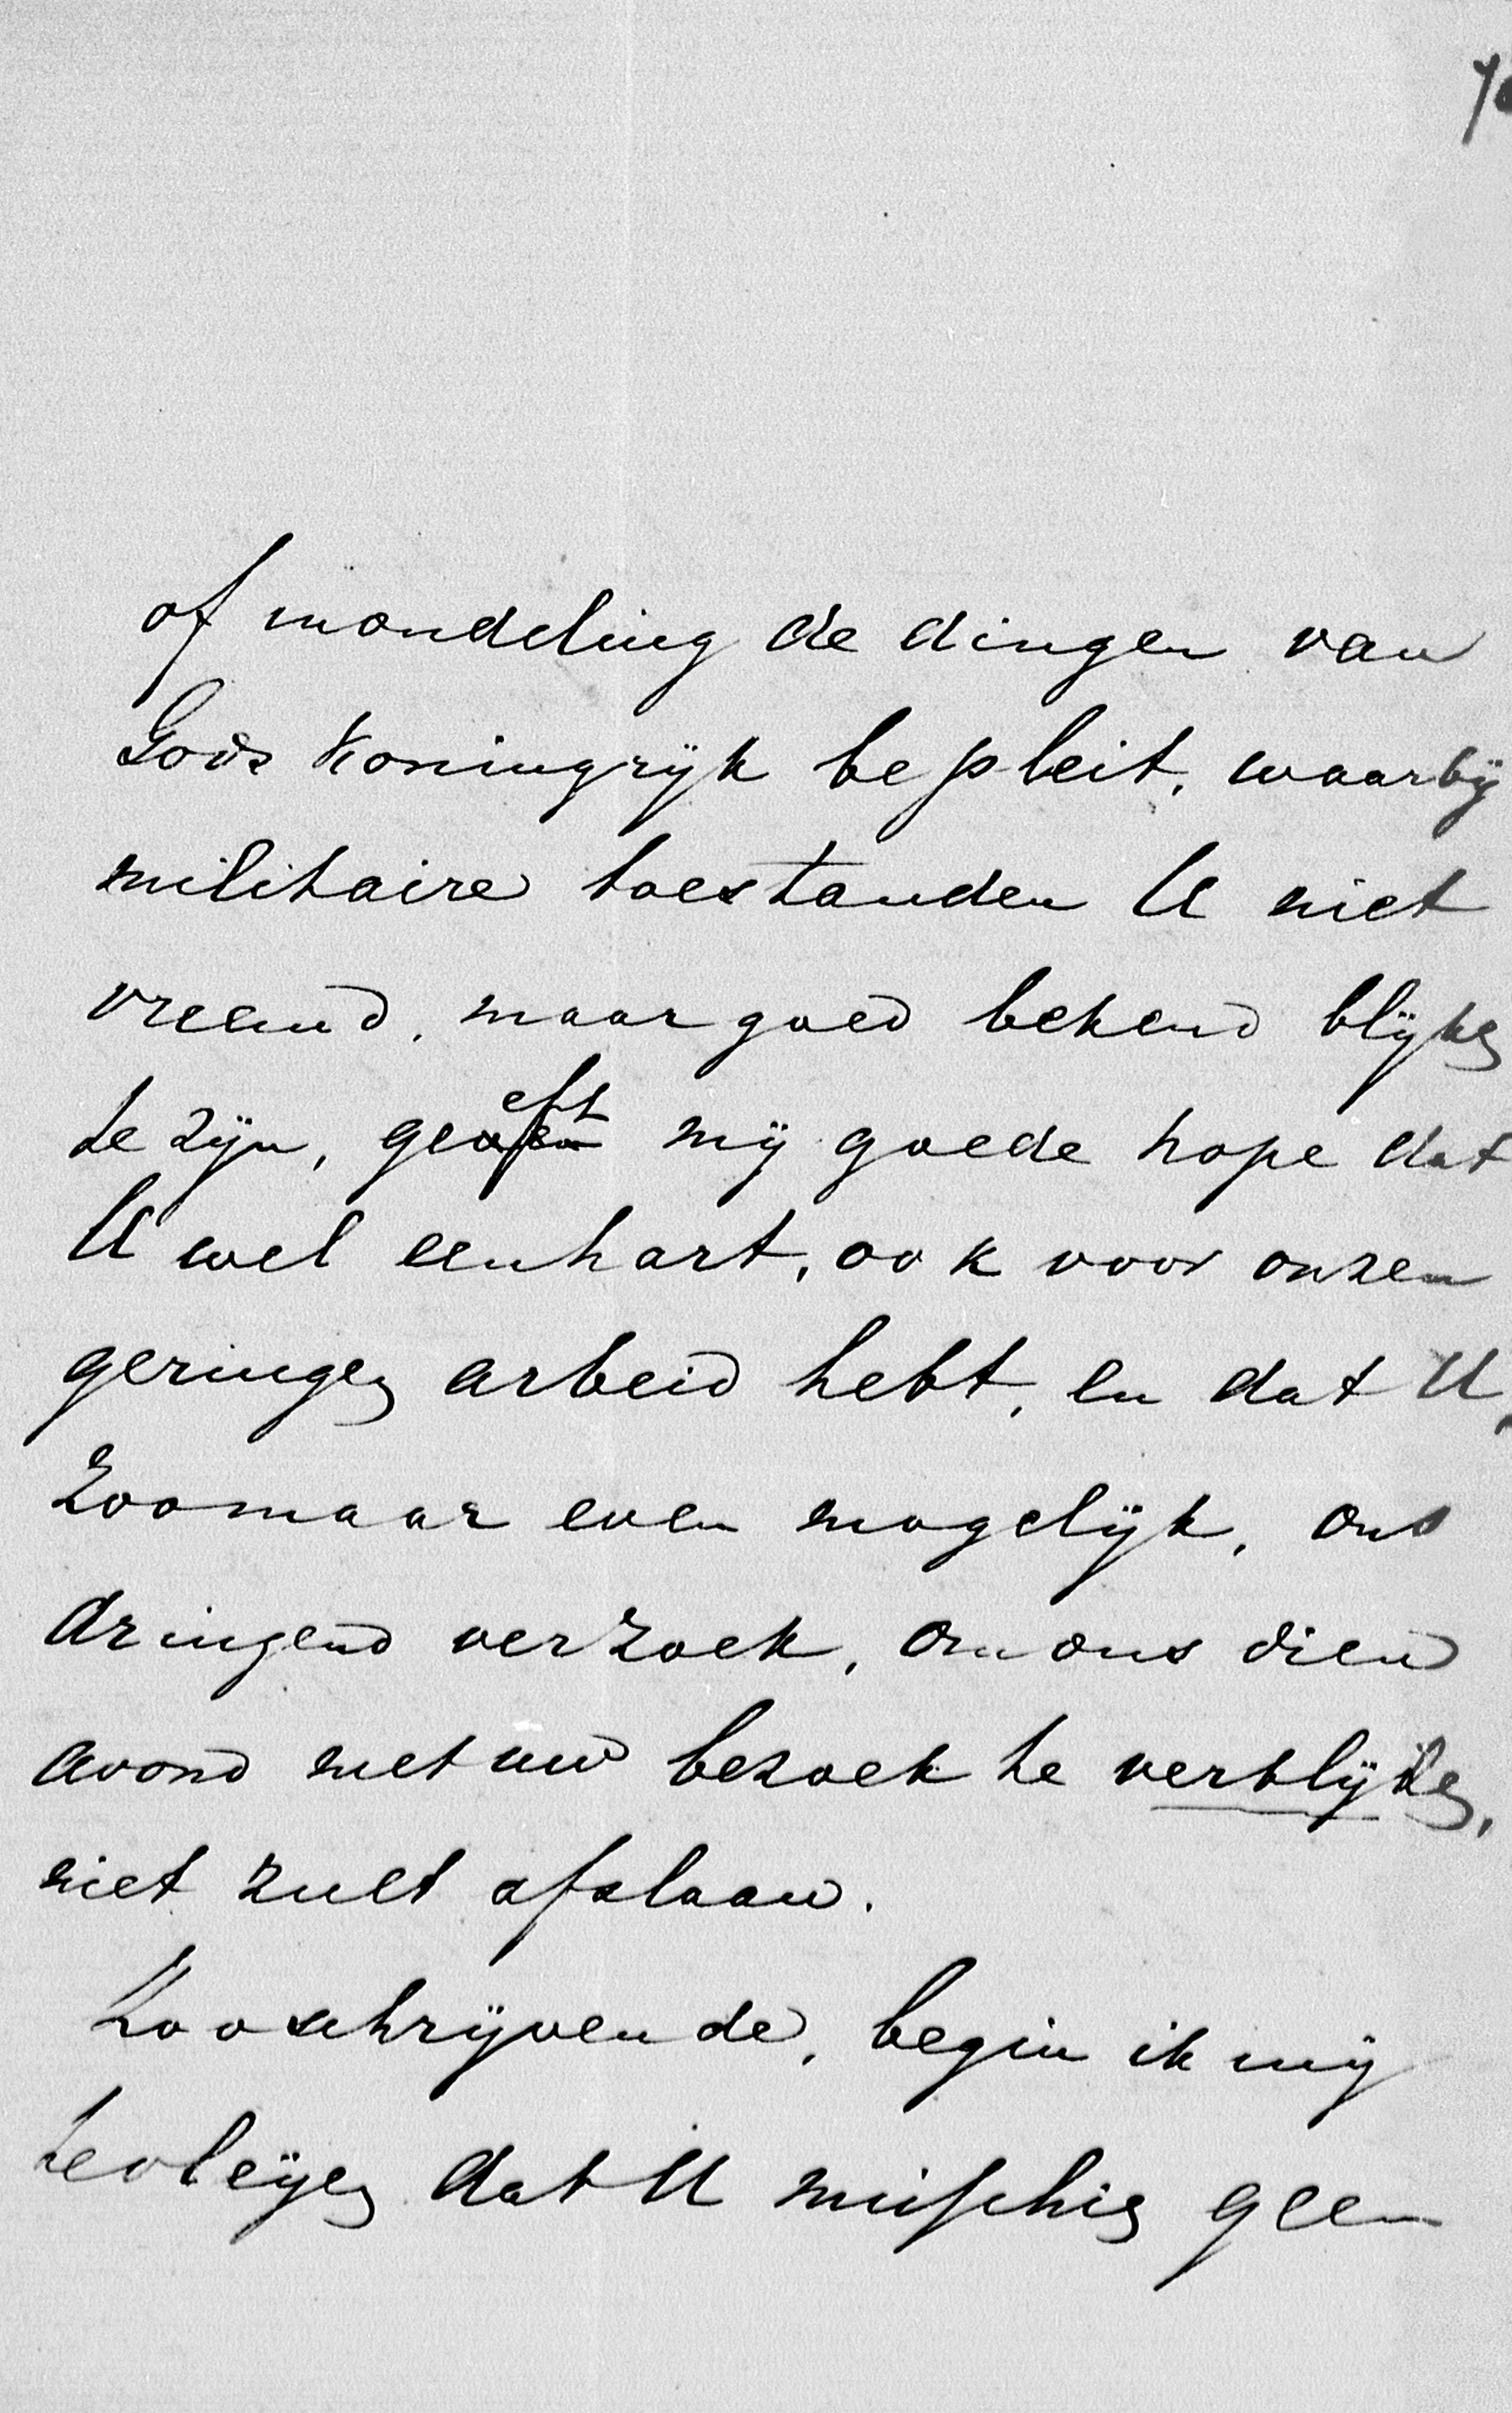 of mondeling de dingen van
Gods Koningrijk bepleit, waarbij
militaire toestanden U niet
vreemd, maar goed bekend blijken
te zijn, geeft mij goede hope dat
U wel een hart, ook voor onzen
geringen arbeid hebt, en dat U,
zoomaar even mogelijk, ons
dringend verzoek, om ons dien
avond met uw bezoek te verblijden,
niet zult afslaan.
Zoo schrijvende, begin ik mij
te vleijen dat U misschien geen